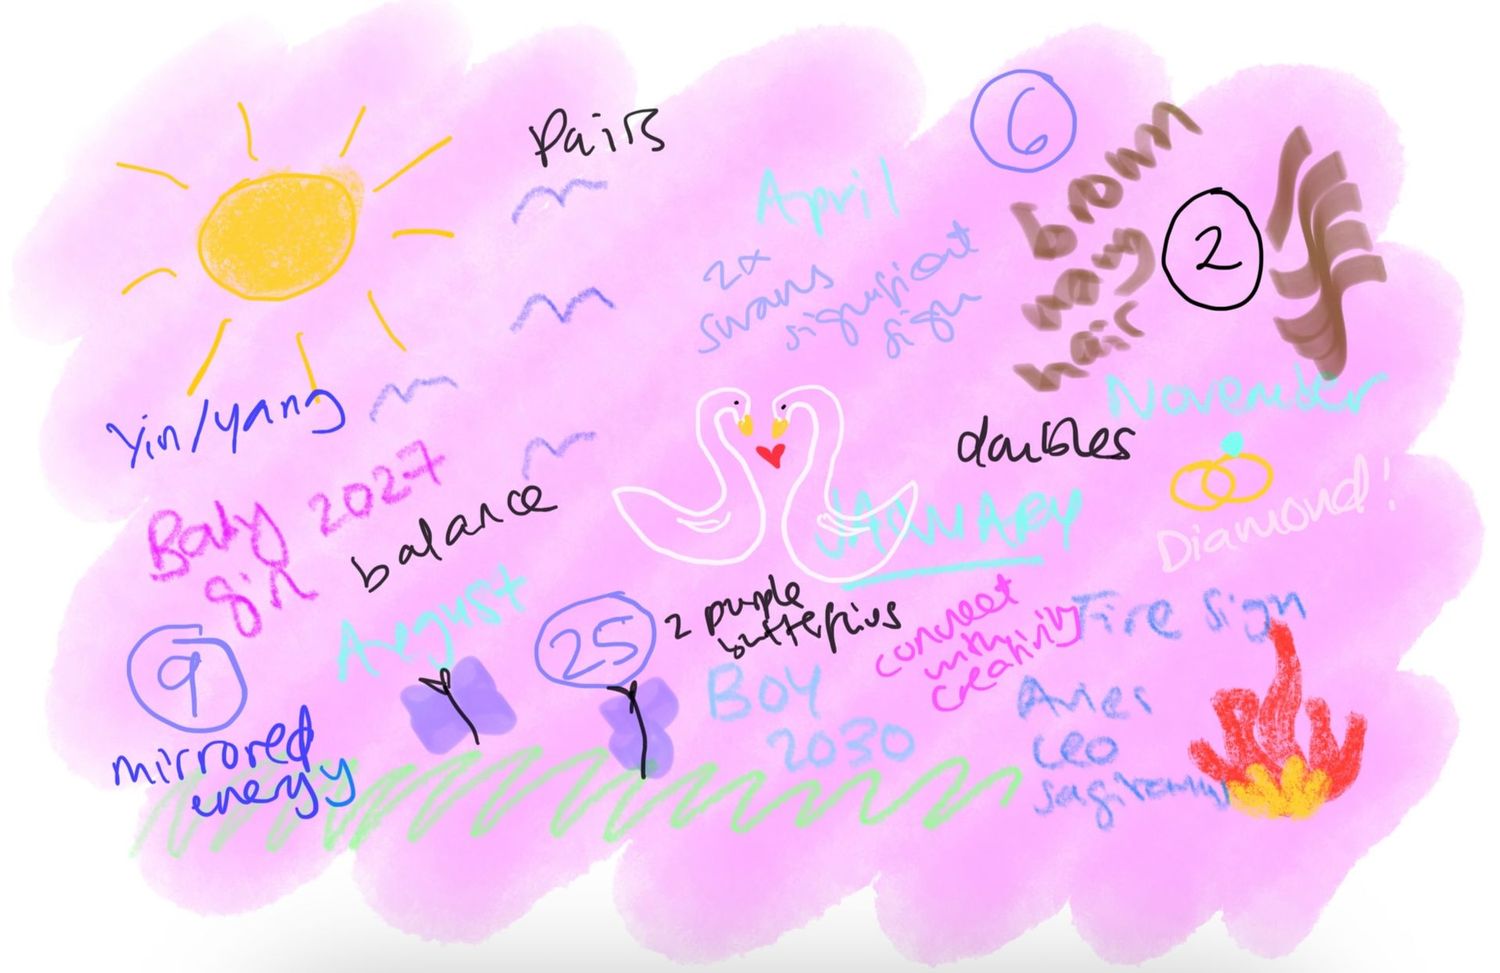 Pairs
6
brown
wavy
hair
2
April
2x
swans
significant
sign
Yin/yang
November
doubles
Baby 2027
girl
balance
JANUARY
Diamond!
August
9
25
2 purple
butterflies
connect
with
creativity
Fire Sign
mirrored
energy
Boy
2030
Aries
Leo
Sagittarius